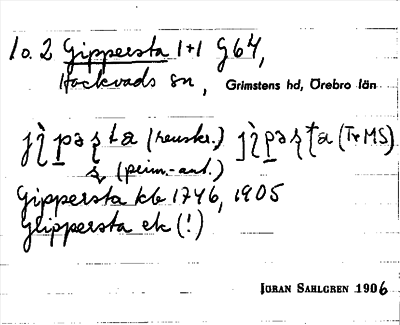 1 o. 2 Gippersta 1+1 G64,
Hackvads sn, Grimstens hd, Örebro län
(renskr.) (Tr MS)
(prim.-ant.)
Gippersta kb 1746, 1905
Glippersta ek (!)
JÖRAN SAHLGREN 1906